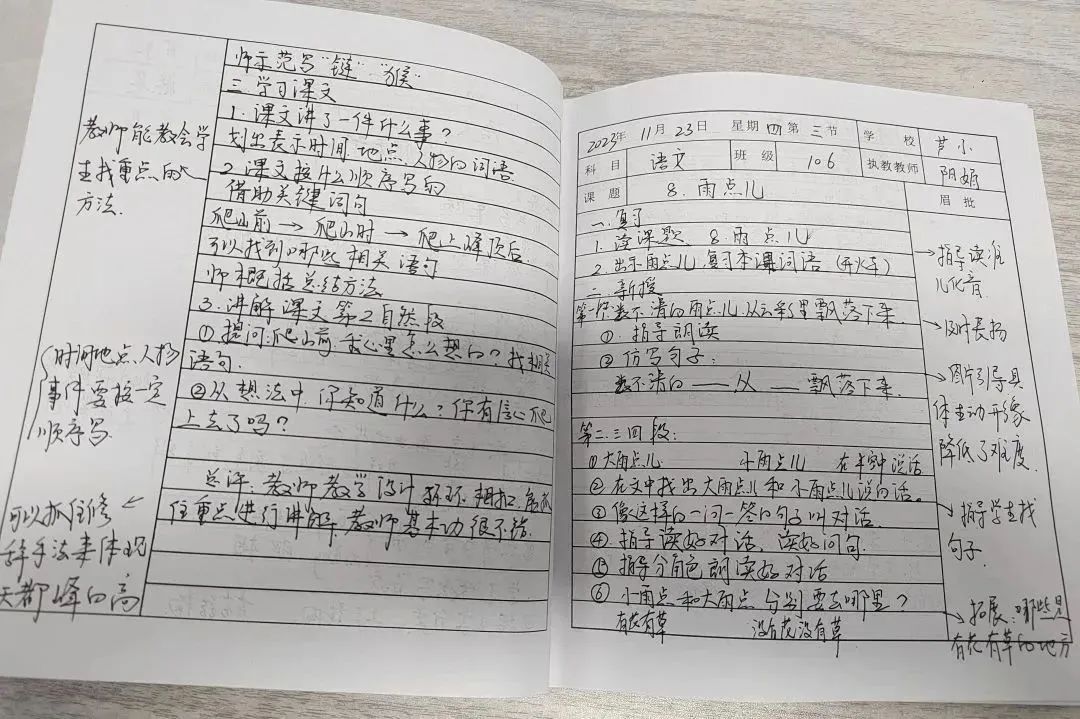 师示范写“链”“猴”
三.学习课文
1.课文讲了一件什么事?
划出表示时间 地点 人物的词语
2.课文按什么顺序写的
借助关键词句
爬山前→爬山时→爬上峰顶后
可以找到哪些相关语句
师概括总结方法
3.讲解课文第2自然段
①提问:爬山前 我心里怎么想的?找相关
语句.
②从想法中你知道什么?你有信心爬
上去了吗?
总评:教师教学设计环环相扣,
住重点进行讲解,教师基本功很不错.
教师能教会学
生找重点的
方法.
时间地点人物
事件要按一定
顺序写
可以抓住修
辞手法来体现
天都峰的高
2023年 11月23日 星期四 第三节 学校 甘小
科目 语文 班级 106 执教教师 阴娟
课题 8.雨点儿 眉批
一.复习
1.读课题 8.雨点儿
2.出示雨点儿 复习本课词语(开火车)
二.新授
第一段:数不清的雨点儿 从云彩里飘落下来.
①.指导朗读
②仿写句子:
数不清的——从——飘落下来.
第二.三回段:
①大雨点儿 小雨点儿 在半空中说话
②在文中找出大雨点儿和小雨点儿说的话.
③像这样的一问一答的句子叫对话.
④指导读好对话,读好问句.
⑤指导分角色朗读好对话
⑥小雨点和大雨点分别要去哪里?
有花有草 没有花没有草
→指导读准
儿化音.
→及时表扬
→图片引导具
体生动形象
降低了难度.
→指导学生找
句子.
→拓展:哪些是
有花有草的地方